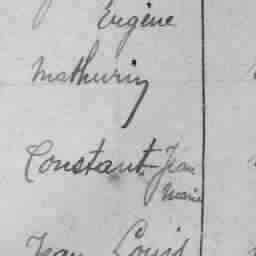 Eugène
Mathurin
Constant-Jean
Marie
Jean Louis